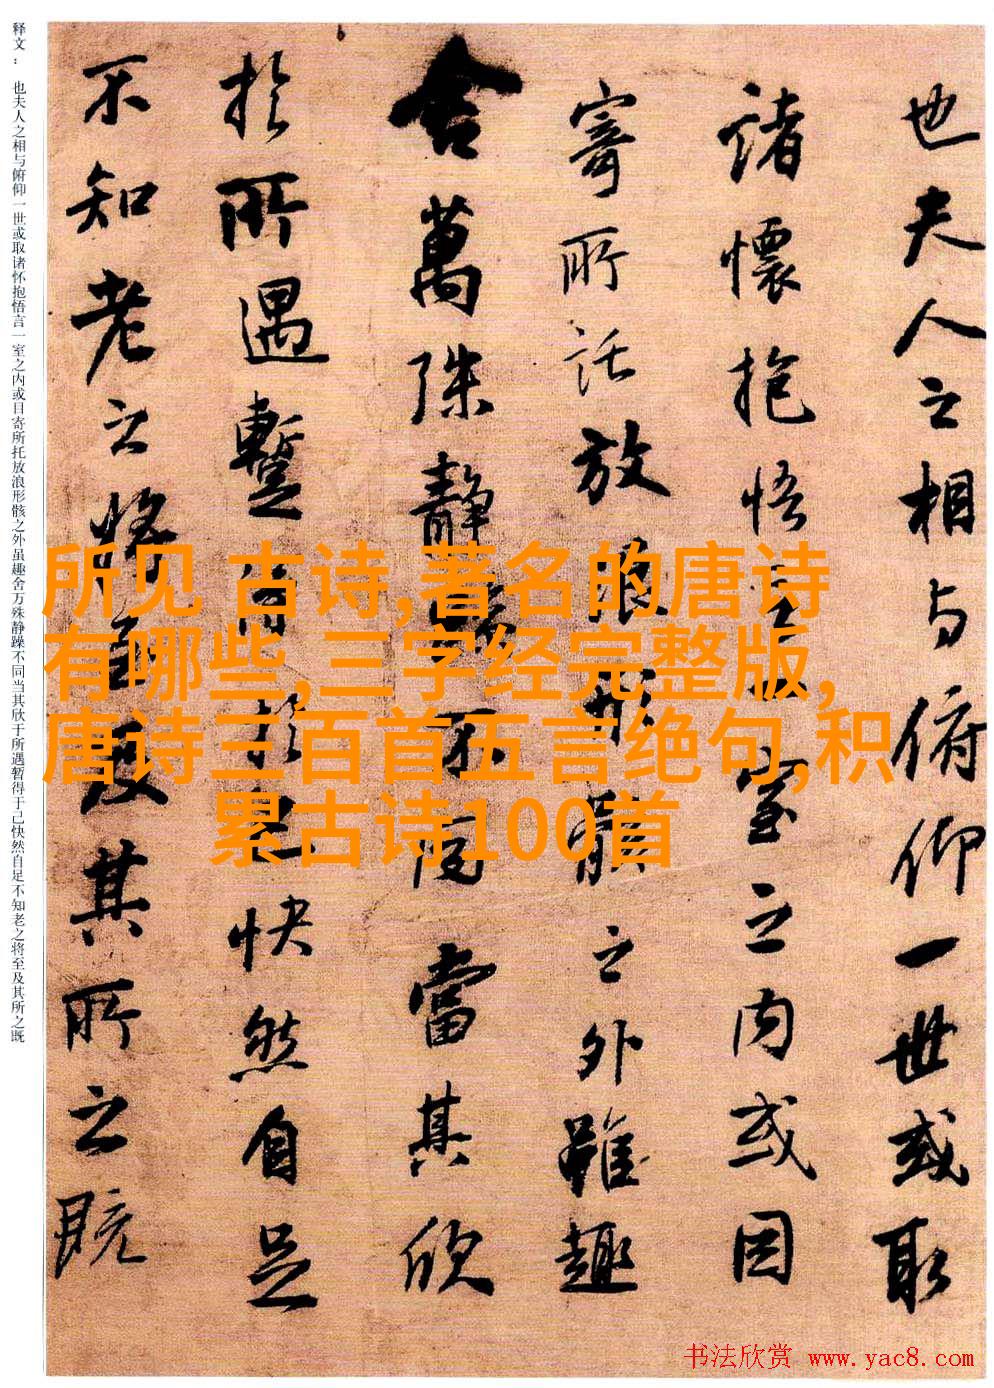 也夫人之相與俯仰一世或取
諸懷抱悟言一室之内或因
寄所託放浪形骸之外雖趣
舍萬殊靜躁不同當其欣
於所遇暫得於己快然自足
不知老之將至及其所之既
释文：也夫人之相与俯仰一世或取诸怀抱悟言一室之内或目寄所托放浪形骸之外虽趣舍万殊静躁不同当其欣于所遇暂得于己快然自足不知老之将至及其所之既
所见 古诗,著名的唐诗
有哪些,三字经完整版,
唐诗三百首五言绝句,积
累古诗100首
书法欣赏 www.yac8.com